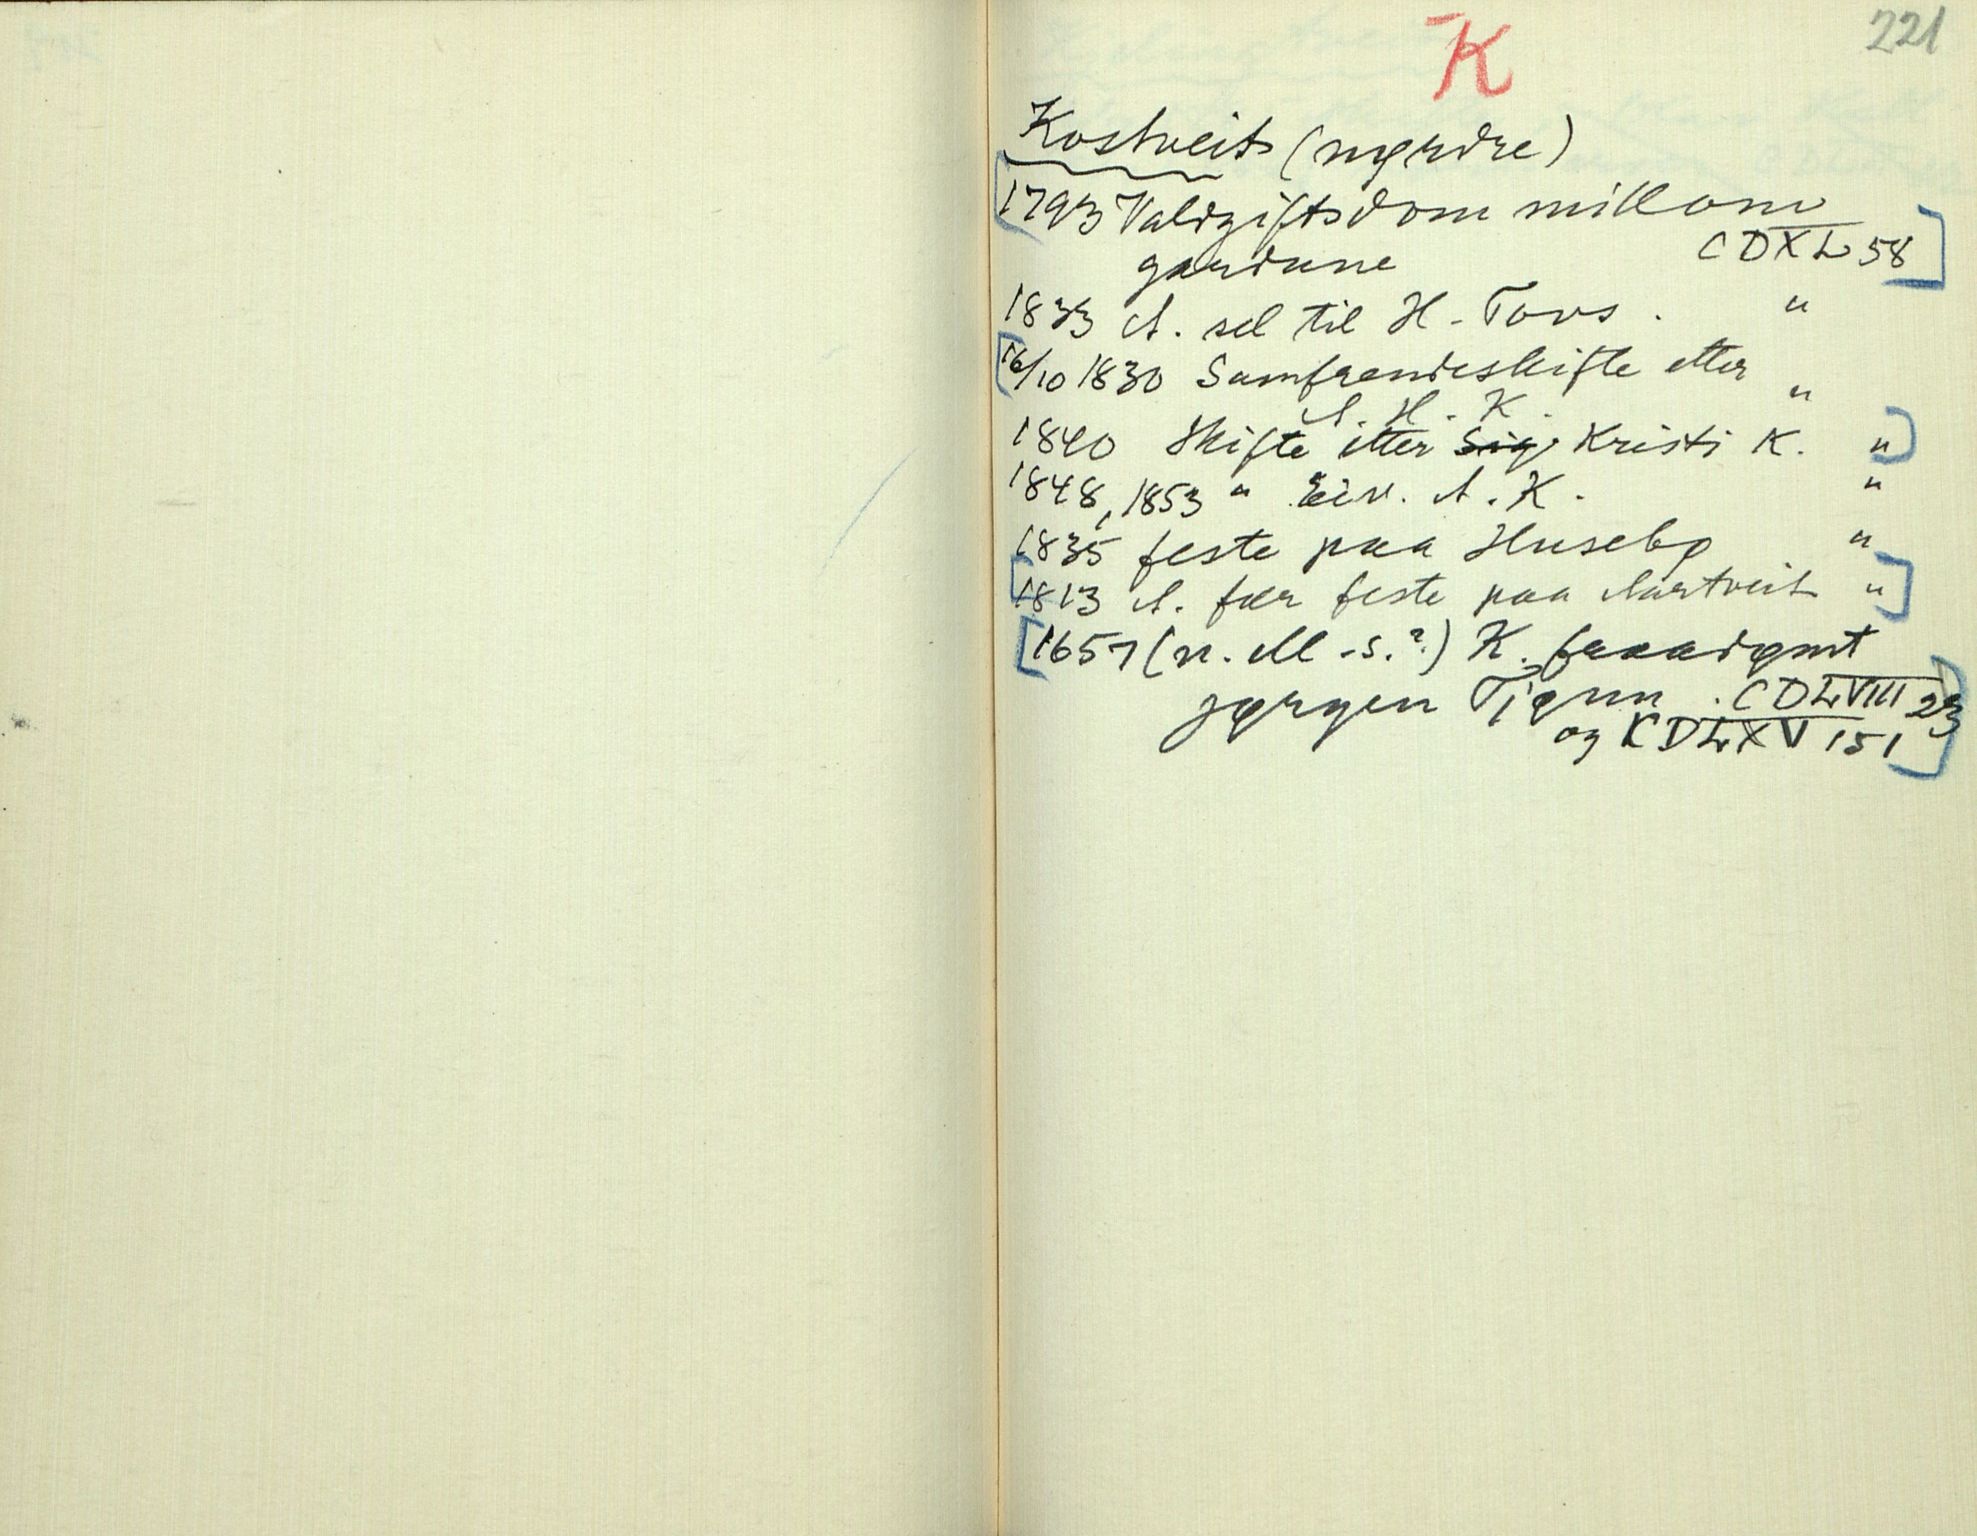 K
221
Kostveit (nyrdre)
[1793 Valdgiftsdom millom
gardane CDXL 58]
1833 A. sel til H. Tovs. "
[16/10 1830 Samfrendeskifte etter
A. H. K. "
1840 Skifte etter Sig Kristi K. "]
1848, 1853 " Eiv. A. K. "
1835 feste paa Huseby "
[1813 A. fær feste paa Aartveit "]
[1657 (n. M-s.?) K. faaadømt
Jørgen Tjønn. CDLVIII 23
og CDLXV 151]